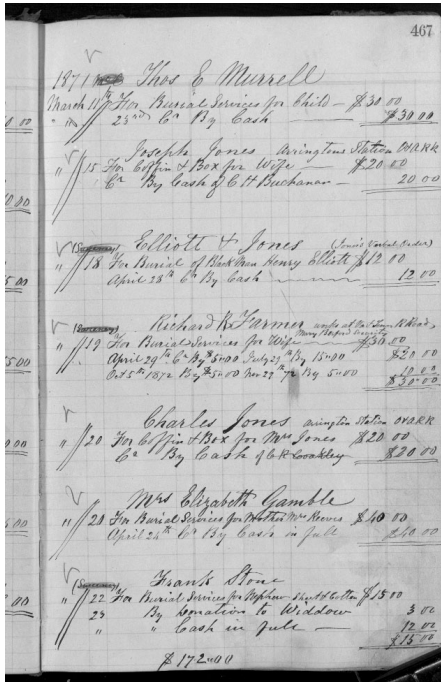 467
1871 Thos E Murrell
March 11th For Burial Services for Child — $30 00
" " 23rd Cr By Cash $30 00
Joseph Jones Arringtons Station O&ARR
" 15 For Coffin & Box for Wife $20 00
Cr By Cash of C H Buchanan 20 00
(Sumervey) Elliott & Jones (Jones Verbal Order)
" 18 For Burial of Black Man Henry Elliott $12 00
April 23th Cr By Cash 12 00
(Sumervey) Richard R Farmer works at
" 19 For Burial Services for Wife $30 00
April 29th Cr By $5"00 July 29th By 15"00 $20 00
Oct 5th 1872 By $5"00 Nov 29th 72 By 5"00 10 00
$30"00
Charles Jones Arrington Station O&ARR
" 20 For Coffin & Box for Mrs Jones $20 00
Cr By Cash of C R Coakley $20 00
Mrs Elizabeth Gamble
" 20 For Burial Services for Mother Mrs Reeves $40 00
April 24th Cr By Cash in full $40 00
Frank Stone
" 22 For Burial Services for Nephew $15 00
23 By Donation to Widdow 3 00
" " Cash in full — 12 00
$15 00
$172"00